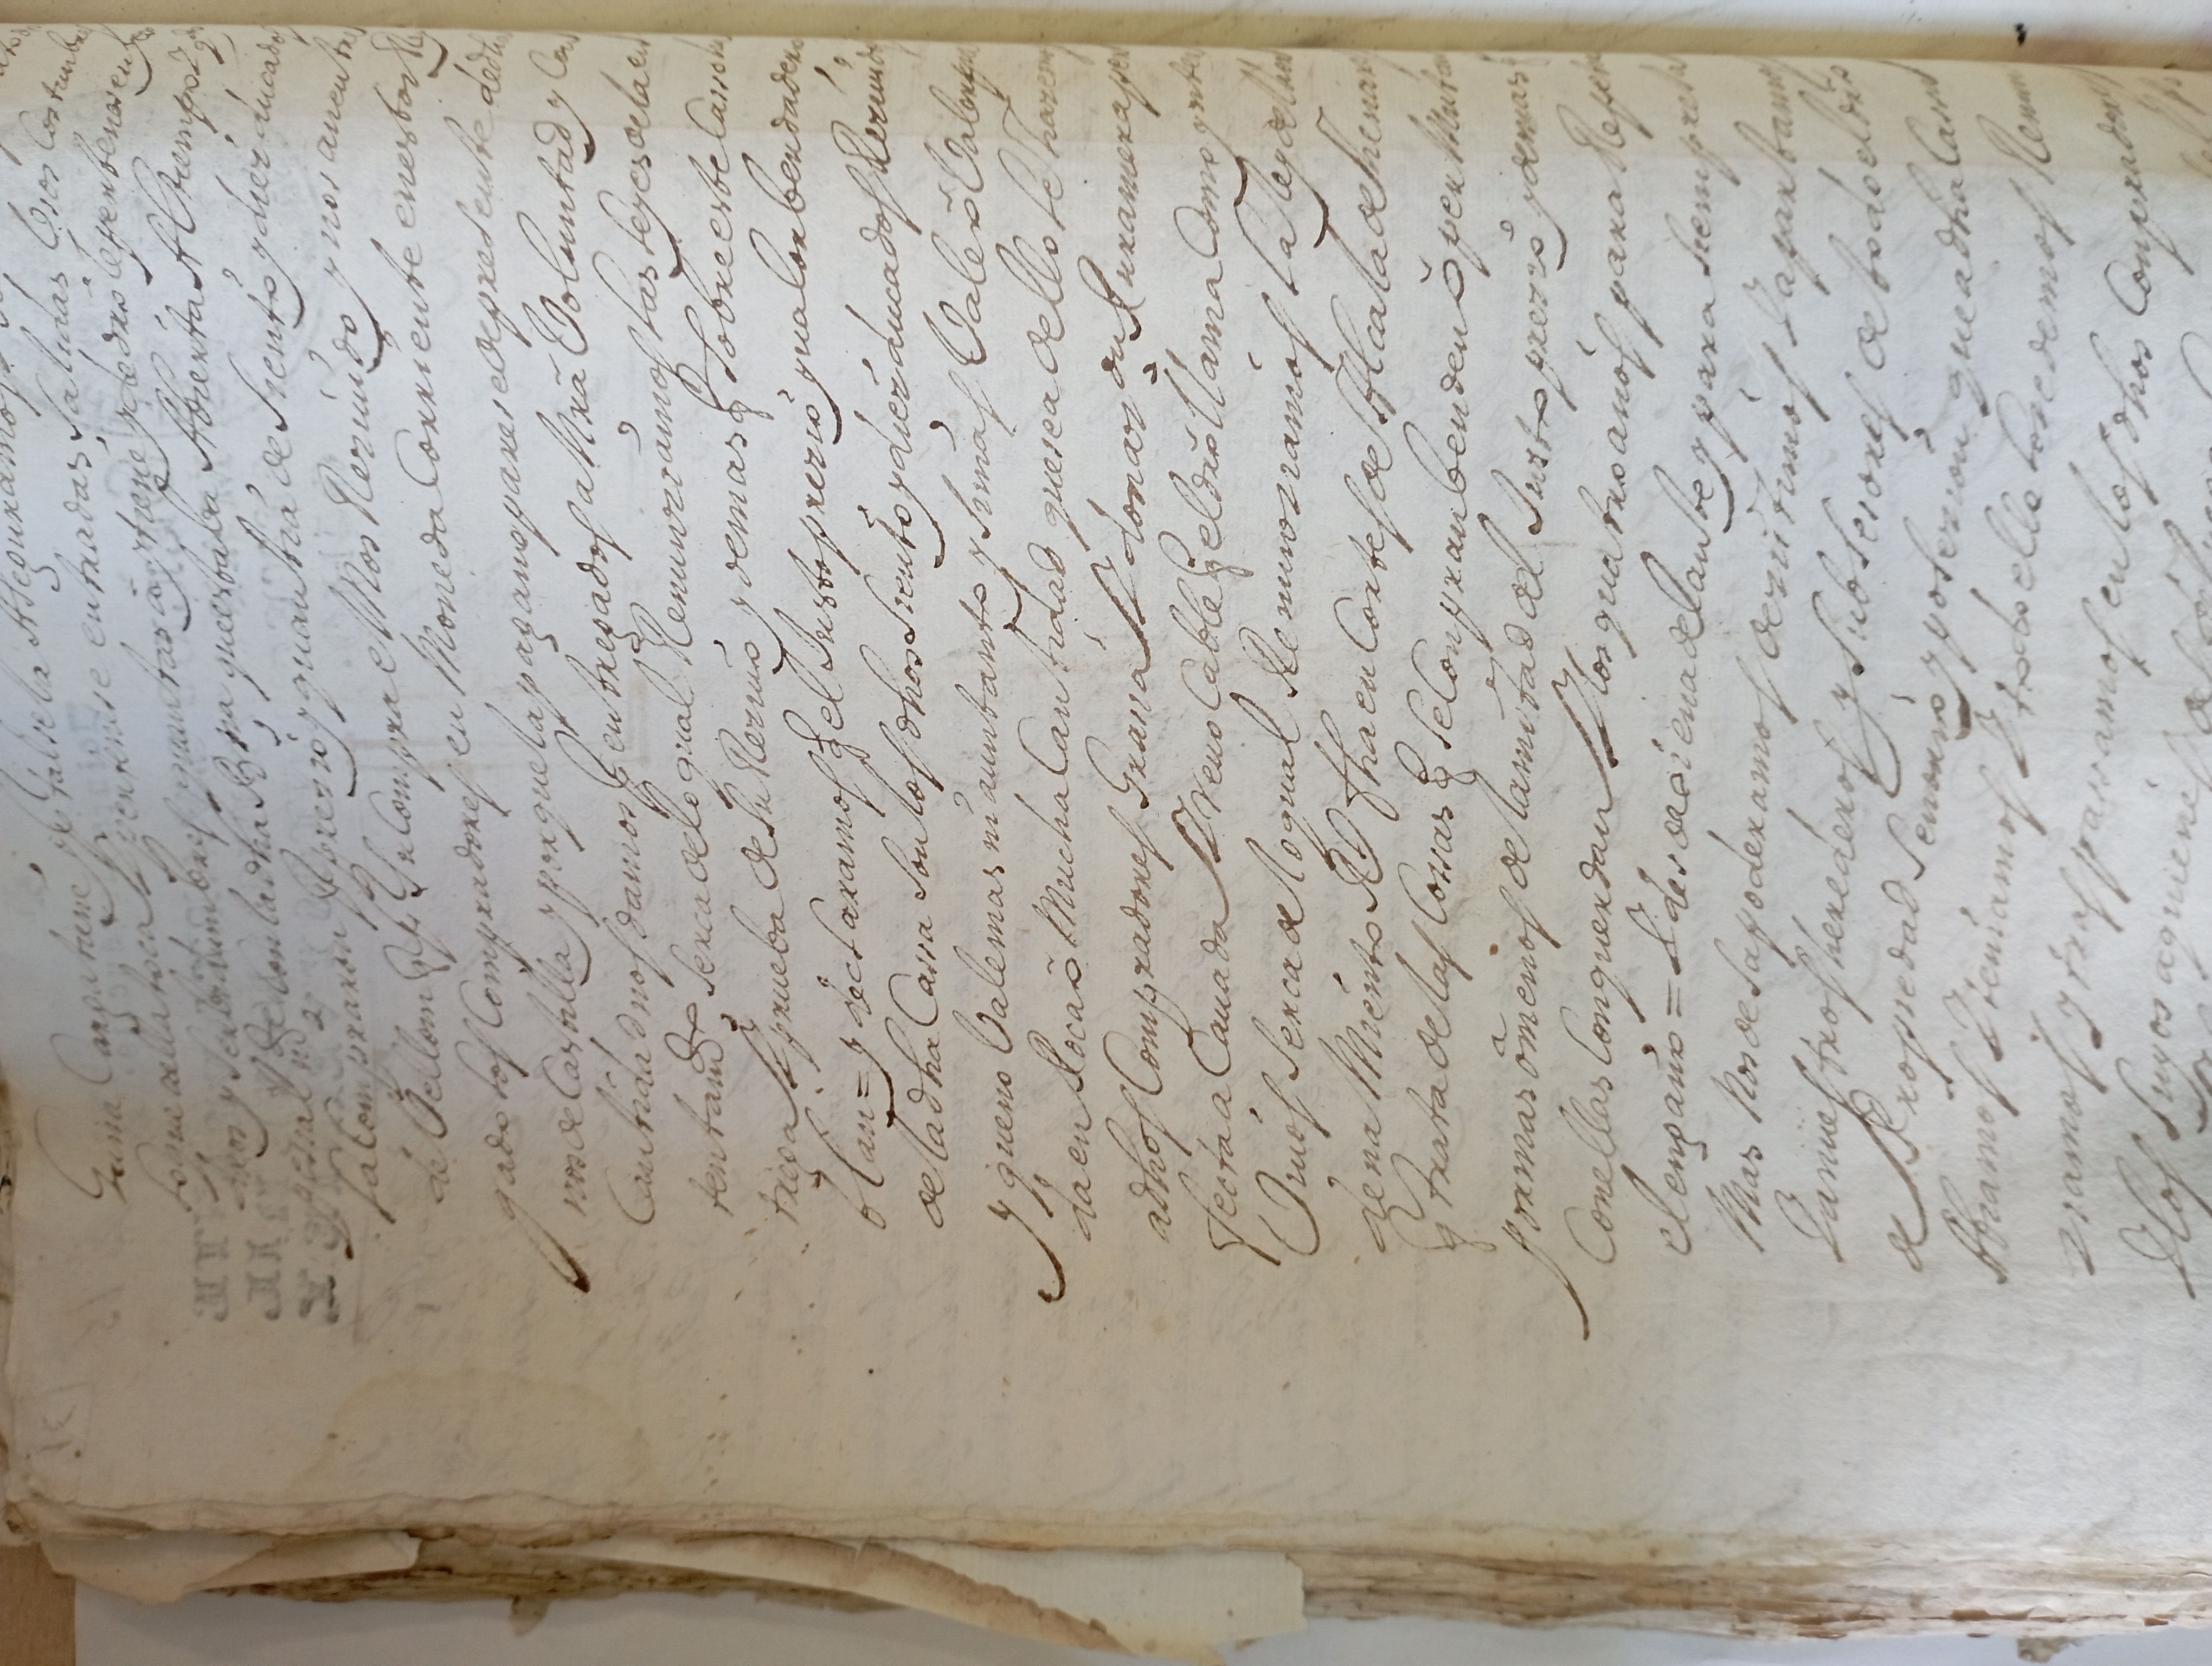 Guna Carga tiene q tal se la Aseguramos
lo que aella toca Y pertenese entradas Salidas Usos Costunbres
dros y Serbidumbres quantas ā y tiene y de dro le pertenesen
y de con la dha que estaba Abierta Al tiempo Y q
la Compraron prezio y quantia de Siento y diez ducados
de Vellom q Su Compra emos Rezuido y nos an entre
gado los Compradores en Moneda Corriente en estos Rey
nos de Castilla y porque la paga no parese de presente de dha
Cantidad nos damos entregados a Nrã Voluntad y Con
tentamto serca de lo qual Renunziamos las leyes de la en
trega Y prueba de Su Reziuo y demas q Sobre este Casso ha
blan = y declaramos q el Justo prezio y ualor berdadero
de la dha Cassa Son los dhos Siento y diez ducados Rezuidos
y que no Vale mas ni aun tanto y Si mas Vale õ Valer pue
da en Poca õ Mucha Cantidad que sea dello le Haremos
a dhos Compradores Grasia Y donazon Pura mera per
fecta a Cauada Y reuo Cable q el dro llama Como ynter
Uiuos Serca de lo qual Renunziamos la ley del hor
dena Miento Rl fha en Cortes de Alcala de Henares
q trata de las Cossas q Se Conpran benden õ per Mutan
por mas õ menos de la mitad del Justo prezio y demas q
Con ellas Conquerdan Y los quatro años para Repetir
el engaño = Y desde oi en adelante y para Siempre Ja
Mas Nos desapoderamos dezistimos Y apartamos
Y a nuestros herederos y Subsesores de todo el dro
de Propiedad Señorio y posezion que a dha Cassa
Abiamos Y teniamos Y todo ello lo sedemos Renun
ziamos y traspassamos en los dhos Conpradores
Y los Suyos a quienes